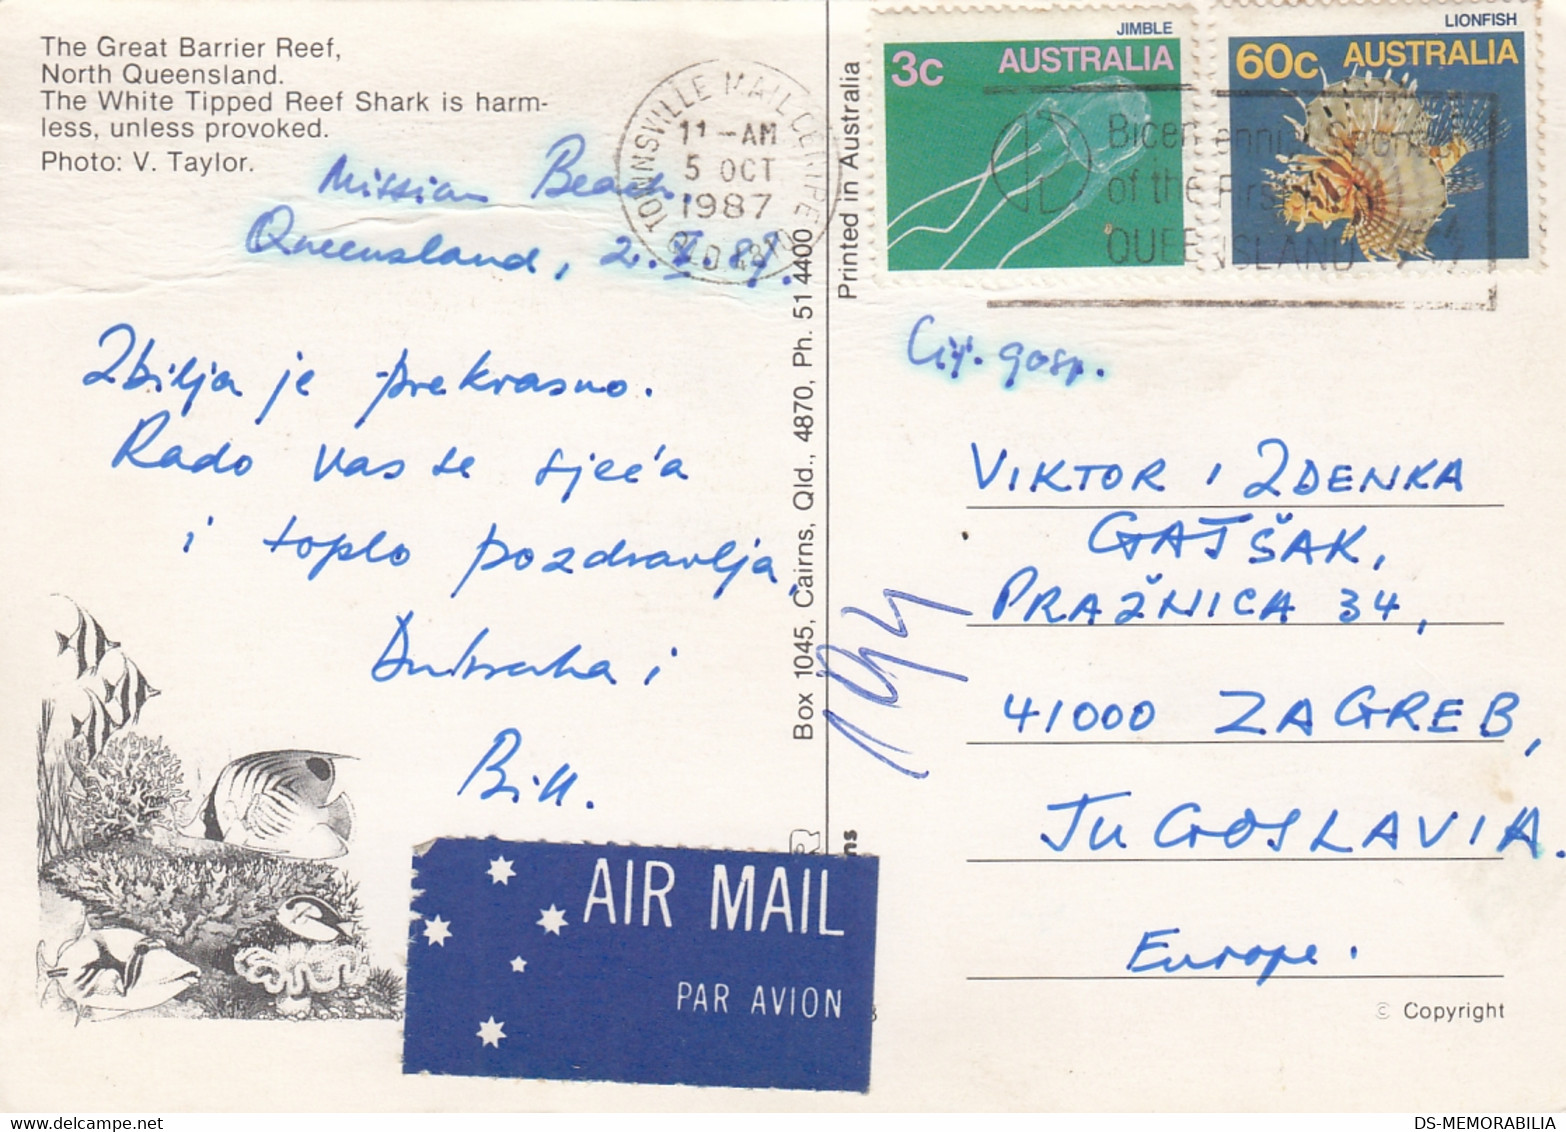 The Great Barrier Reef,
North Queensland.
The White Tipped Reef Shark is harm-
less, unless provoked.
Photo: V. Taylor.
Mission Beach,
Queensland, 2. X. 87.
Zbilja je prekrasno.
Rado vas se sjeća
i toplo pozdravlja,
i
Bill.
AIR MAIL
PAR AVION
Box 1045, Cairns, Qld., 4870, Ph. 51 4400
Printed in Australia
TOWNSVILLE MAIL CENTRE
11-AM
5 OCT
1987
QLD 4810
JIMBLE
3c AUSTRALIA
LIONFISH
60c AUSTRALIA
Bicentennial
of the First
QUEENSLAND
Cij. gosp.
VIKTOR I ZDENKA
GAJŠAK,
PRAŽNICA 34,
41000 ZAGREB,
JUGOSLAVIA.
Europe.
194
© Copyright
DS-MEMORABILIA